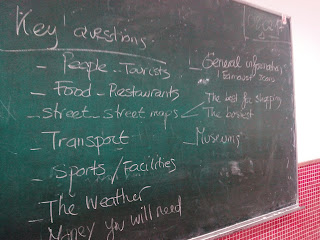 Key questions
- People - Tourists
- Food - Restaurants
- street - street maps
- Transport
- Sports / Facilities
- The Weather
- Money you will need
- General information
Famous
- The best for shopping
- The busiest
- Museums